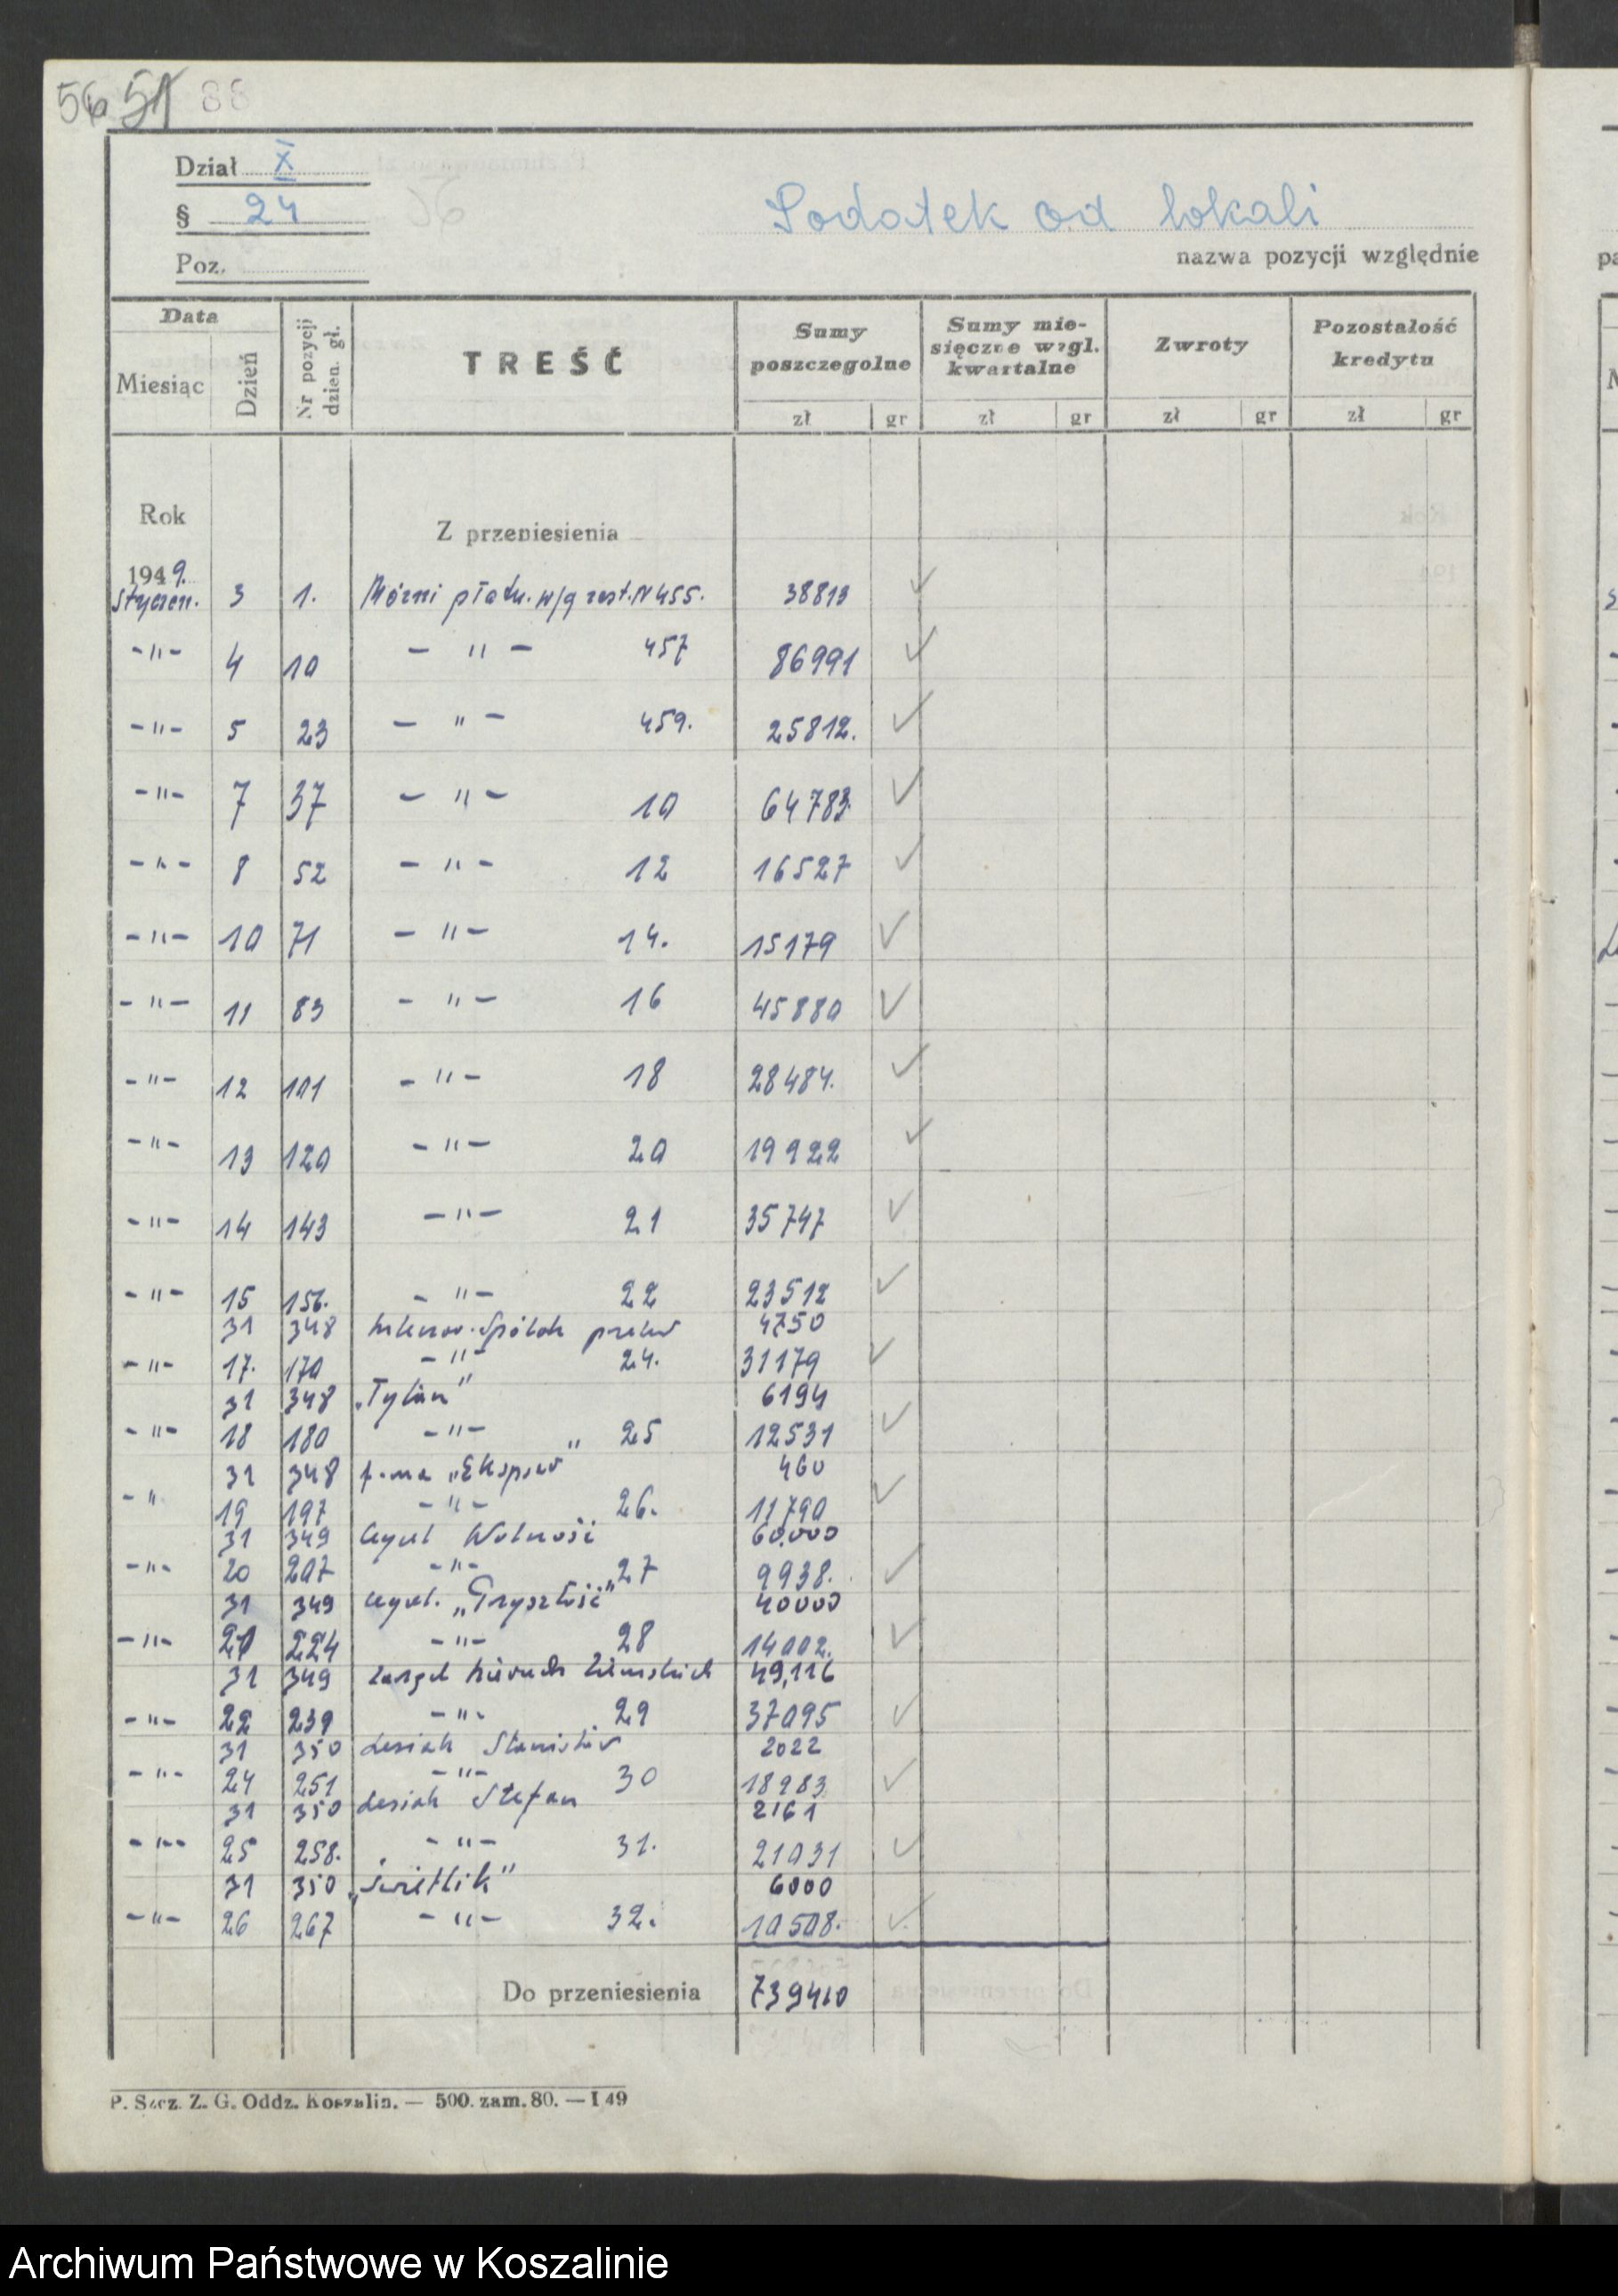 56 51 86
Dział X
§ 24
Podatek od lokali
Poz.
nazwa pozycji względnie
Data
Miesiąc
Dzień
Nr pozycji dzien. gł.
TREŚĆ
Sumy poszczególne
Sumy miesięczne wzgl. kwartalne
Zwroty
Pozostałość kredytu
zł gr zł gr zł gr zł gr
Rok
Z przeniesienia
1949.
Styczeń. 3 1. Różni płatn. w/g zest. N 455. 38813
-"- 4 10 - " - 457 86991
-"- 5 23 - " - 459. 25812.
-"- 7 37 - " - 10 64783.
-"- 8 52 - " - 12 16527
-"- 10 71 - " - 14. 15179
-"- 11 83 - " - 16 45880
-"- 12 101 - " - 18 28484.
-"- 13 120 - " - 20 19922
-"- 14 143 - " - 21 35747
-"- 15 156. - " - 22 23512
31 348 4750
-"- 17. 170 - " - 24. 31179
31 348 6194
-"- 18 180 - " - " 25 12531
31 348 f-ma 460
-" 19 197 - " - 26. 11790
31 349 Wolność 60.000
-"- 20 207 - " - 27 9938.
31 349 „Przyszłość" 40000
-"- 21 224 - " - 28 14002.
31 349 Ziemskich 49,116
-"- 22 239 - " - 29 37095
31 350 Lesiak Stanisław 2022
-"- 24 251 - " - 30 18983
31 350 Lesiak Stefan 2161
-"- 25 258. - " - 31. 21031
31 350 „Świetlik" 6000
-"- 26 267 - " - 32. 10508.
Do przeniesienia 739410
P. Szcz. Z. G. Oddz. Koszalin. — 500. zam. 80. — I 49
Archiwum Państwowe w Koszalinie